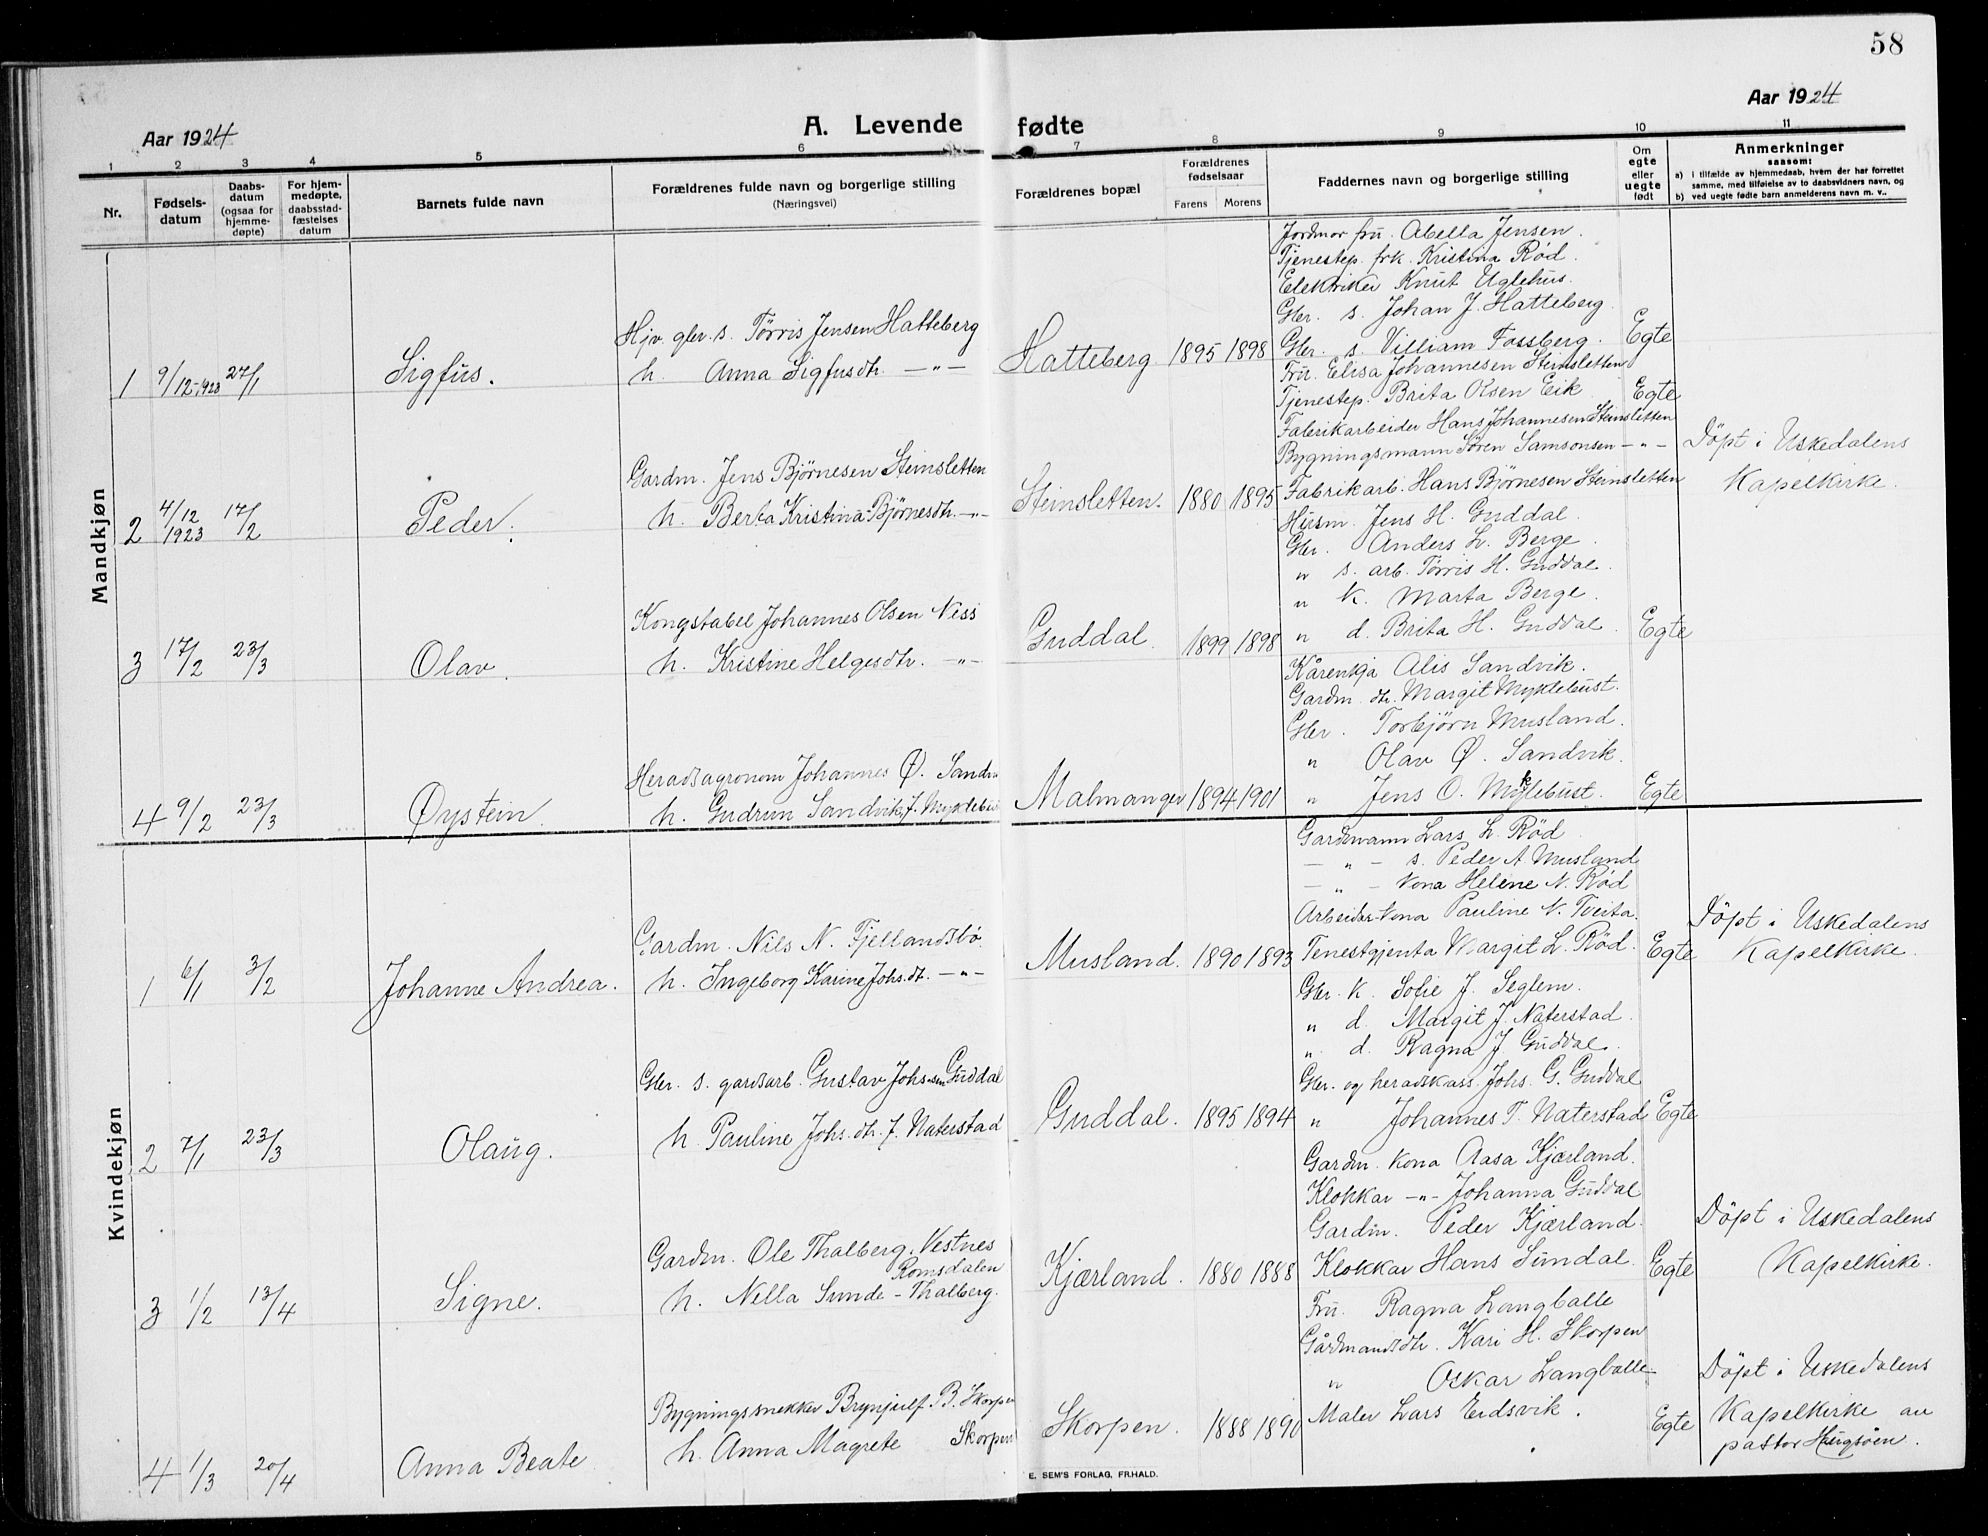 58
Aar 1924
A. Levende fødte
Aar 1924
1 2 3 4 5 6 7 8 9 10 11
Nr.
Fødsels-datum
Daabs-datum (ogsaa for hjemme-døpte)
For hjem-medøpte, daabsstad-fæstelses datum
Barnets fulde navn
Forældrenes fulde navn og borgerlige stilling
(Næringsvei)
Forældrenes bopæl
Forældrenes fødselsaar
Farens Morens
Faddernes navn og borgerlig stilling
Om egte eller uegte født
Anmerkninger
saasom:
a) i tilfælde av hjemmedaab, hvem der har forrettet
samme, med tilføielse av to daabsvidners navn, og
b) ved uegte fødte barn anmelderens navn m. v..
Mandkjøn
1 9/12-1923 27/1 Sigfus.
Hjv. gbr. s. Tørris Jensen Hatteberg
h. Anna Sigfusdtr. -"-
Hatteberg 1895 1898
Jordmor fru. Abella Jensen.
Tjenestep. frk. Kristina Rød.
Elektriker Knut Uglehus.
Gbr. s. Johan J. Hatteberg.
Gbr. s. Villiam Fossberg. Egte
2 4/12 1923 17/2 Peder.
Gardm. Jens Bjørnesen Steinsletten
h. Berta Kristina Bjørnesdtr. -"-
Steinsletten. 1880 1895
Fru. Elisa Johannesen Steinsletten
Tjenestep. Brita Olsen Eik Egte
Fabrikarbeider Hans Johannesen Steinsletten
Bygningsmann Søren Samsonsen -"-
Fabrikarb. Hans Bjørnesen Steinsletten
Döpt i Uskedalens
Kapelkirke.
3 17/2 23/3 Olav.
Kongstabel Johannes Olsen Ness
h. Kristine Helgesdtr. -"-
Guddal. 1899 1898
Husm. Jens H. Guddal
Gbr. Anders L. Berge.
" s. arb. Tørris H. Guddal.
" k. Marta Berge.
" d. Brita H. Guddal. Egte
4 9/2 23/3 Øystein.
Heradsagronom Johannes Ø. Sandv
h. Gudrun Sandvik, f. Myklebus
Malmanger 1894 1901
Alis Sandvik.
Gardm. dtr. Margit Myklebust.
Gbr. Torbjørn Musland.
" Olav Ø. Sandvik.
" Jens O. Myklebust. Egte
Kvindekjøn
1 6/1 3/2 Johanne Andrea.
Gardm. Nils N. Fjellandsbø.
h. Ingeborg Karine Johs.dtr. -"-
Musland. 1890 1893
Gardsmann Lars L. Rød
-"- s. Peder A Musland
-"- kona Helene N. Rød
Arbeidar-kona Pauline N. Tveita.
Tenestgjenta Margit L. Rød. Egte
Döpt i Uskedalens
Kapelkirke.
2 7/1 23/3 Olaug.
Gbr. s. gardsarb. Gustav Johs-sen Guddal
h. Pauline Johs.dtr. f. Naterstad
Guddal. 1895 1894
Gbr. k. Sofie J. Seglem.
" d. Margit J. Naterstad.
" d. Ragna J Guddal.
Gbr. og heradskass. Johs. G. Guddal
" Johannes T. Naterstad Egte
3 1/2 13/4 Signe.
Gardm. Ole Thalberg, Vestnes
Romsdalen
h. Nella Sunde - Thalberg.
Kjærland. 1880 1888
Gardm. kona Aasa Kjærland.
Klokkar -"- Johanna Guddal
Gardm. Peder Kjærland.
Klokkar Hans Sundal. Egte
Döpt i Uskedalens
Kapelkirke.
4 1/3 20/4 Anna Beate
Bygningssnekker Brynjulf B. Skorpen
h. Anna Magrete Skorpen
Skorpen. 1888 1890
Fru. Ragna Langballe
Gårdmandsdtr. Kari H. Skorpen
" Oskar Langballe
Maler Lars Eidsvik. Egte
Döpt i Uskedalens
Kapelkirke av
pastor Haugsöen.
E. SEM'S FORLAG, FR.HALD.